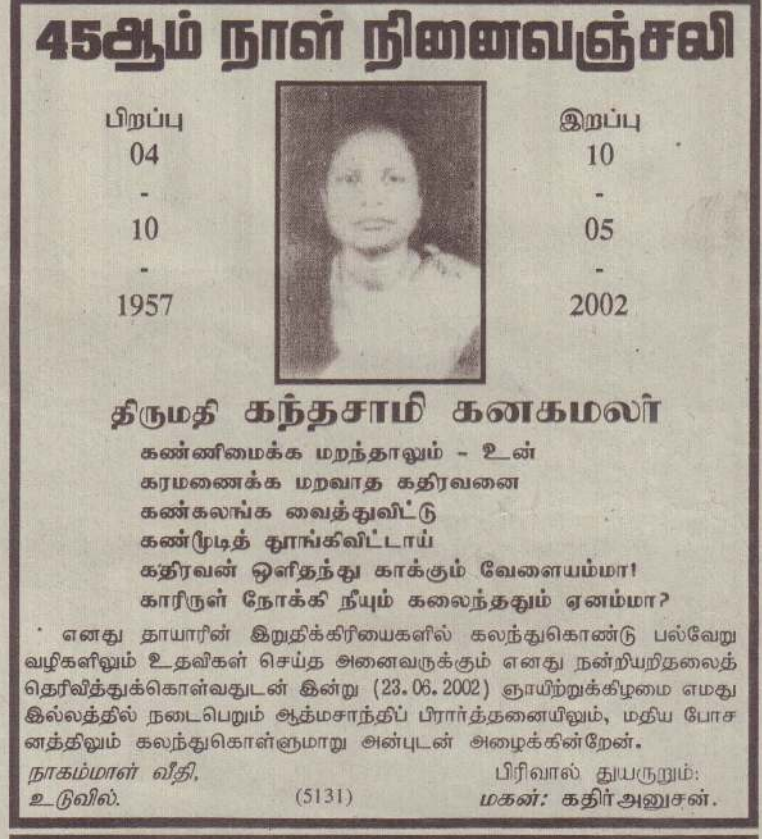 45ஆம் நாள் நினைவஞ்சலி
பிறப்பு
04
-
10
-
1957
இறப்பு
10
-
05
-
2002
திருமதி கந்தசாமி கனகமலர்
கண்ணிமைக்க மறந்தாலும் - உன்
கரமணைக்க மறவாத கதிரவனை
கண்கலங்க வைத்துவிட்டு
கண்மூடித் தூங்கிவிட்டாய்
கதிரவன் ஒளிதந்து காக்கும் வேளையம்மா!
காரிருள் நோக்கி நீயும் கலைந்ததும் ஏனம்மா?
எனது தாயாரின் இறுதிக்கிரியைகளில் கலந்துகொண்டு பல்வேறு
வழிகளிலும் உதவிகள் செய்த அனைவருக்கும் எனது நன்றியறிதலைத்
தெரிவித்துக்கொள்வதுடன் இன்று (23.06.2002) ஞாயிற்றுக்கிழமை எமது
இல்லத்தில் நடைபெறும் ஆத்மசாந்திப் பிரார்த்தனையிலும், மதிய போச
னத்திலும் கலந்துகொள்ளுமாறு அன்புடன் அழைக்கின்றேன்.
நாகம்மாள் வீதி,
உடுவில்.
(5131)
பிரிவால் துயருறும்:
மகன்: கதிர்அனுசன்.